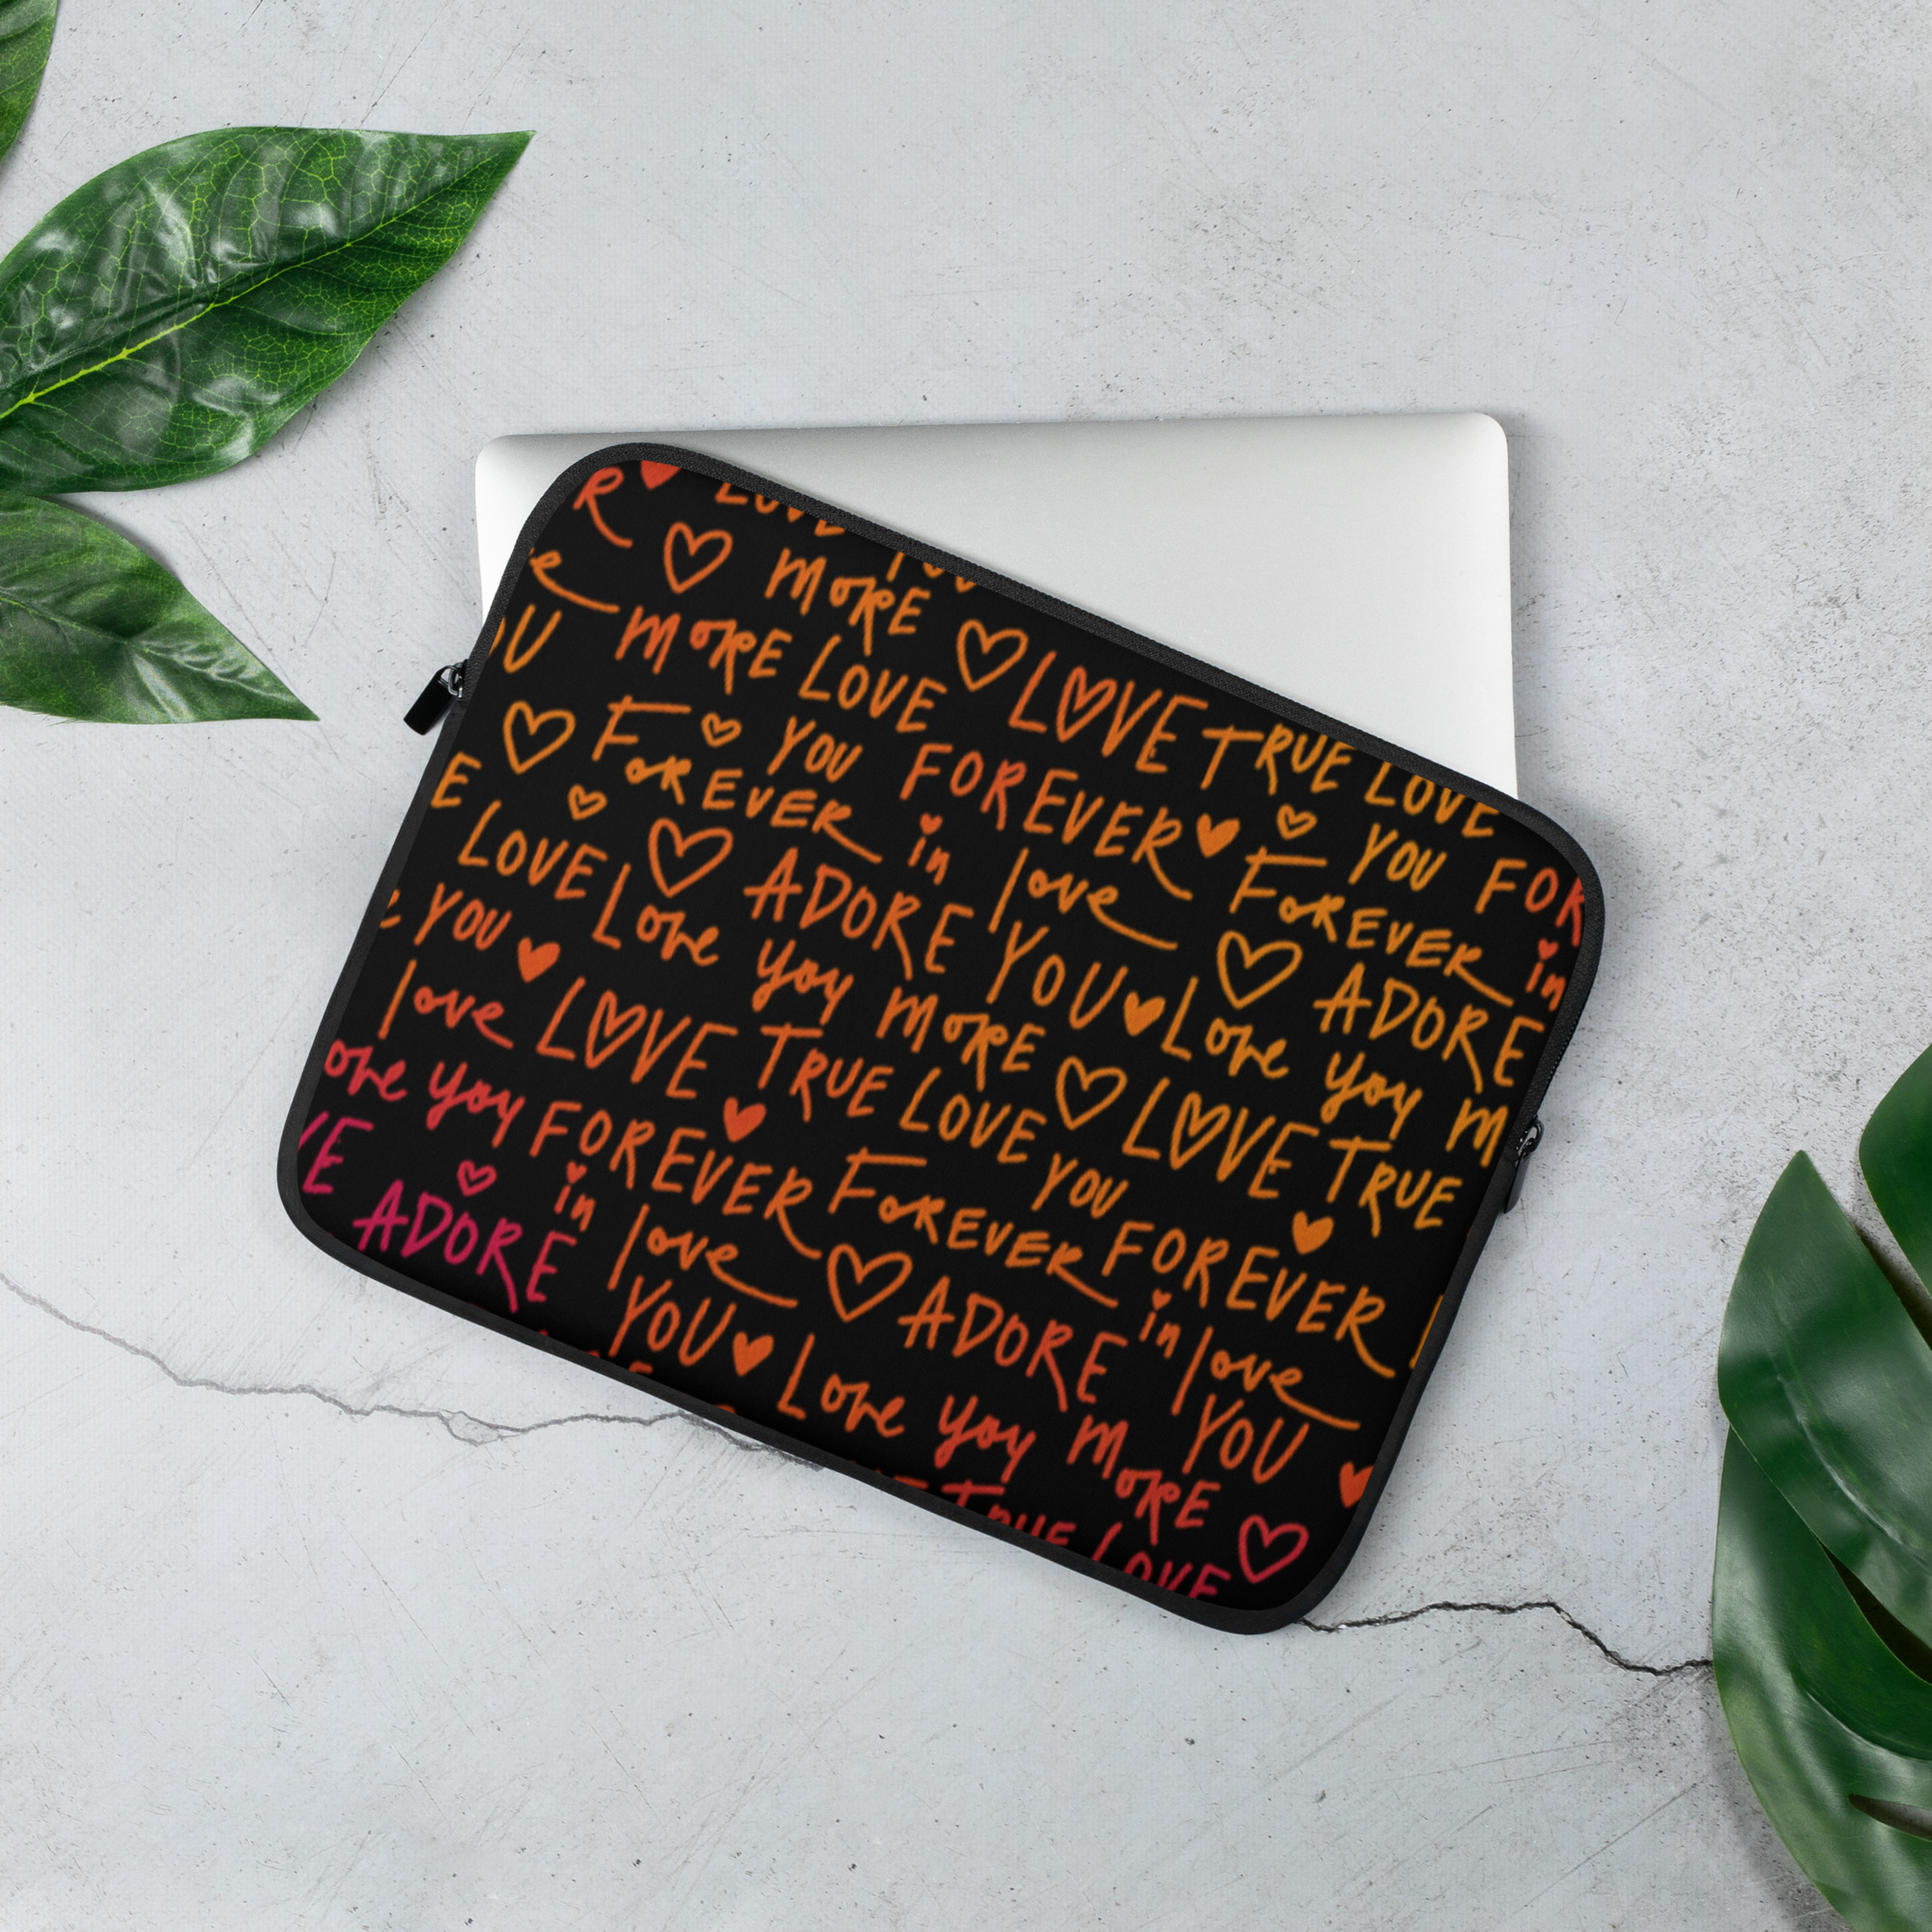 R LOVE
MORE LOVE TRUE LOVE
MORE LOVE YOU FOREVER YOU FOR
FOREVER in love FOREVER in
LOVE ADORE YOU ADORE
YOU Love you MORE Love you M
love LOVE TRUE LOVE LOVE TRUE
you FOREVER YOU FOREVER
FOREVER
ADORE in love ADORE in love
YOU Love you MORE YOU
TRUE LOVE